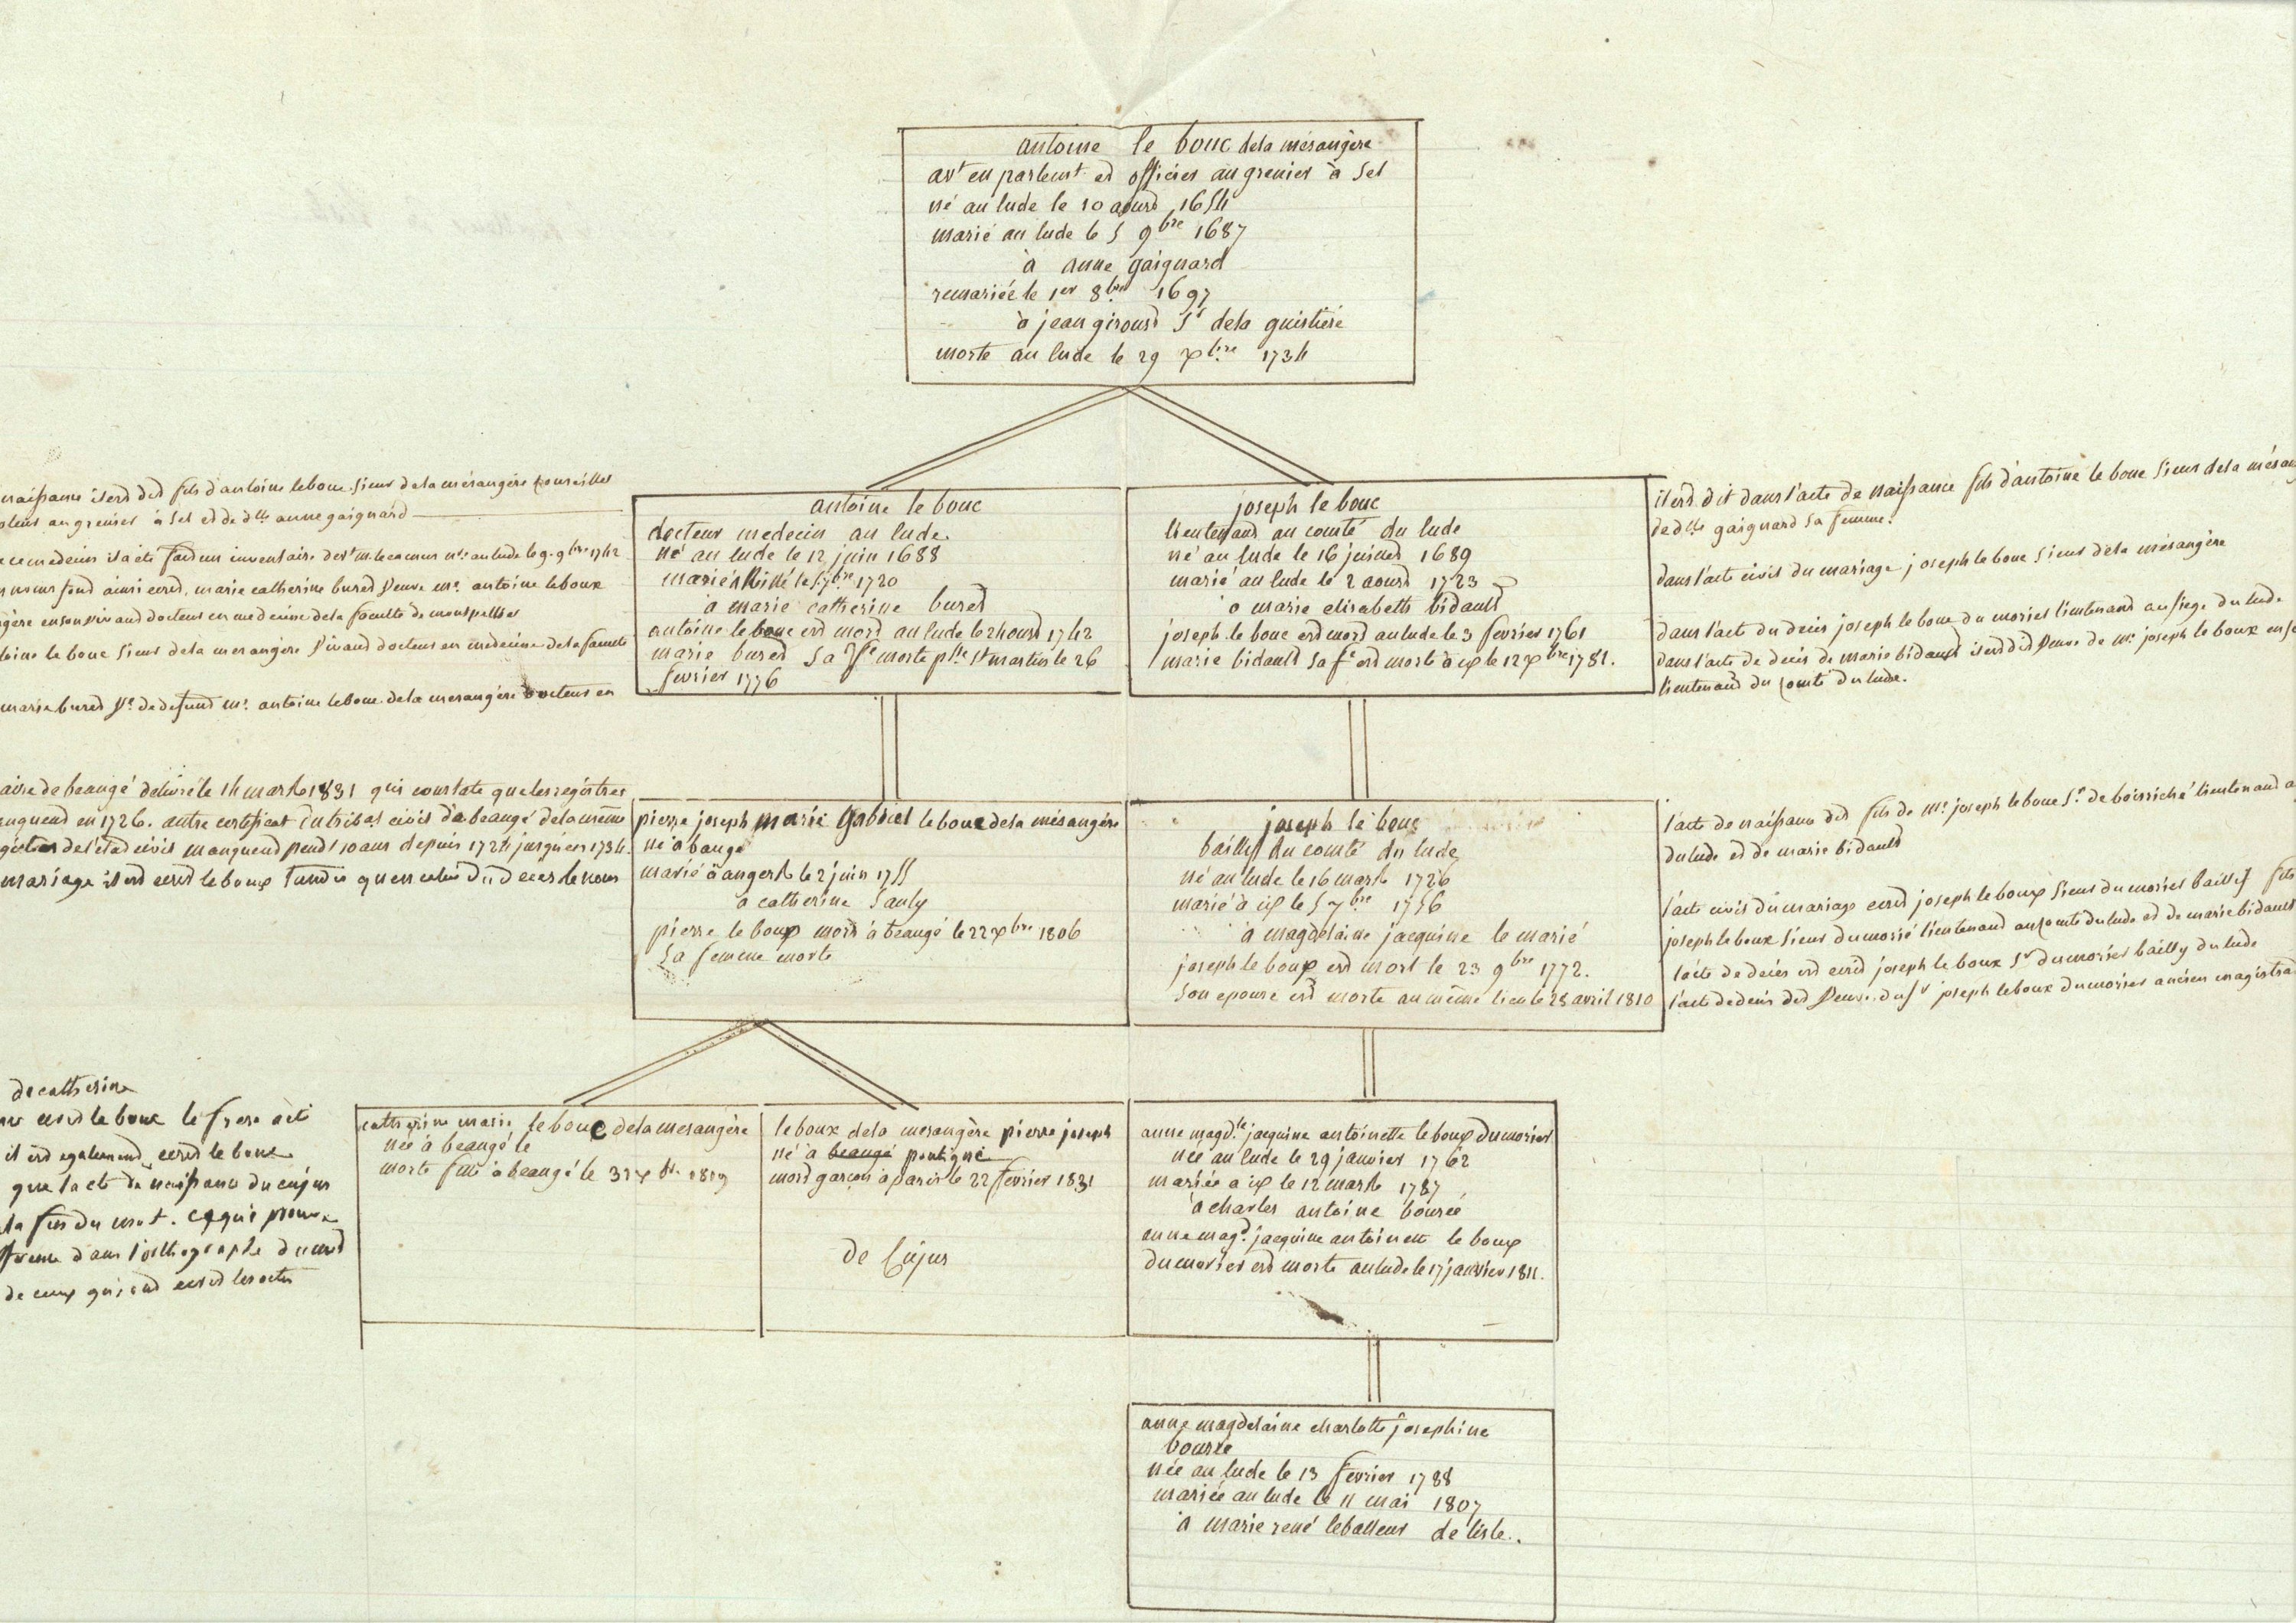 antoine le bouc dela mésangère
avt en parlemt et officier au grenier à sel
né au lude le 10 aoust 1654
marié au lude le 5 9bre 1687
à anne gaignard
remariée le 1er 8bre 1697
à jean giroust Sr dela guistiere
morte au lude le 29 xbre 1734
naissance il est dit fils d'antoine lebouc sieur dela mésangère conseiller
au grenier à sel et de dlle anne gaignard
medecin il a été fait un inventaire devt m. lecamus nre au lude le 9. 9bre 1742
noms sont ainsi ecrit, marie catherine buret veuve mr. antoine leboux
en son vivant docteur en medecine dela faculté de montpellier
le bouc sieur dela mesangère vivant docteur en medecine dela faculté
marie buret Ve. de defunt mr. antoine lebouc dela mesangère docteur en
antoine le bouc
docteur medecin au lude
né au lude le 12 juin 1688
marié le 5 7bre 1720
à marie catherine buret
antoine le bouc est mort au lude le 24 oust 1742
marie buret sa Ve morte pse st martin le 26
fevrier 1776
joseph le bouc
lieutenant au comté du lude
né au lude le 16 juillet 1689
marié au lude le 2 aoust 1723
à marie elisabeth bidault
joseph le bouc est mort au lude le 3 fevrier 1761
marie bidault sa fe est morte à ip le 12 xbre 1781.
il est dit dans l'acte de naissance fils d'antoine le bouc sieur dela mésan
de dlle gaignard sa femme.
dans l'acte civil du mariage joseph le bouc sieur dela mésangère
dans l'act du décès joseph le bouc du morier lieutenant au siege du lude
dans l'acte de decès de marie bidault il est dit veuve de mr. joseph le boux en s
lieutenant du comté du lude.
de beaugé délivré le 14 mars 1831 qui constate que les registres
en 1726. autre certificat du tribal civil de beaugé dela même
de l'état civil manquent pendt 10 ans depuis 1724 jusqu'en 1734.
mariage il est ecrit le boux tandis qu'en celui du deces le nom
pierre joseph marie gabriel le bouc dela mésangère
né à baugé
marié à angers le 2 juin 1755
à catherine Sauly
pierre le boux mort à beaugé le 22 xbre 1806
sa femme morte
joseph le bouc
bailly du comté du lude
né au lude le 16 mars 1726
marié à ip le 5 7bre 1756
à magdelaine jacquine le marié
joseph le boux est mort le 23 9bre 1772.
son epouse est morte au même lieu le 28 avril 1810
l'acte de naissance dit fils de mr. joseph le bouc sr. de boisriché lieutenant a
du lude et de marie bidault
l'acte civil du mariage ecrit joseph le boux sieur du morier baillif fils
joseph le boux sieur du morié lieutenant au comté du lude et de marie bidault
l'acte de décès est ecrit joseph le boux sr du morier bailly du lude
l'acte de decès dit veuve du sr joseph le boux du morier ancien magistrat
de catherine
ecrit le bouc le frere acte
il est egalement ecrit le bouc
que l'acte de naissance du cujus
la fin du mot. ce qui prouve
dans l'orthographe du mot
de ceux qui ont ecrit les actes
catherine marie le bouc dela mesangère
née à beaugé le
morte fille à beaugé le 31 xbr. 1819
leboux dela mesangère pierre joseph
né à beaugé pontigné
mort garçon à paris le 22 fevrier 1831
de Cujus
anne magdle jacquine antoinette le boux dumorier
née au lude le 29 janvier 1762
mariée à ip le 12 mars 1787
à charles antoine bourée
anne magd. jacquine antoinette le boux
dumorier est morte au lude le 17 janvier 1811.
anne magdelaine charlotte josephine
bourée
née au lude le 13 fevrier 1788
mariée au lude le 11 mai 1807
à marie rené leballeur de lisle.